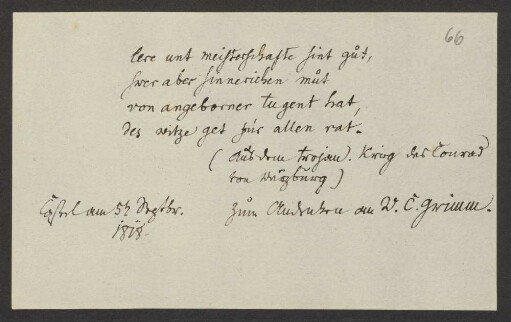 66
lere unt meisterschafte sint gůt,
swer aber sinnerichen můt
von angeborner tugent hat,
des witze get für allen rat.
(Aus dem trojan. Krieg des Conrad
von Würzburg)
Cassel am 5t Septbr. zum Andenken an W. C. Grimm.
1818.